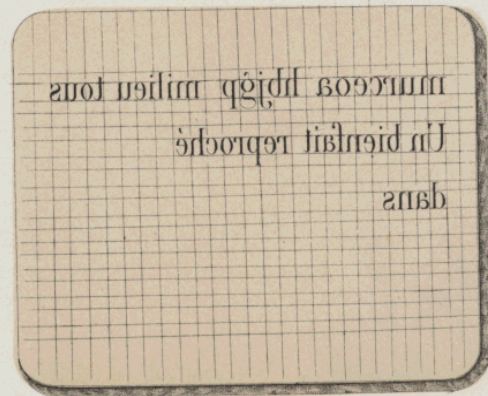 murceoa hbjġp milieu tous
Un bienfait reproché
dans